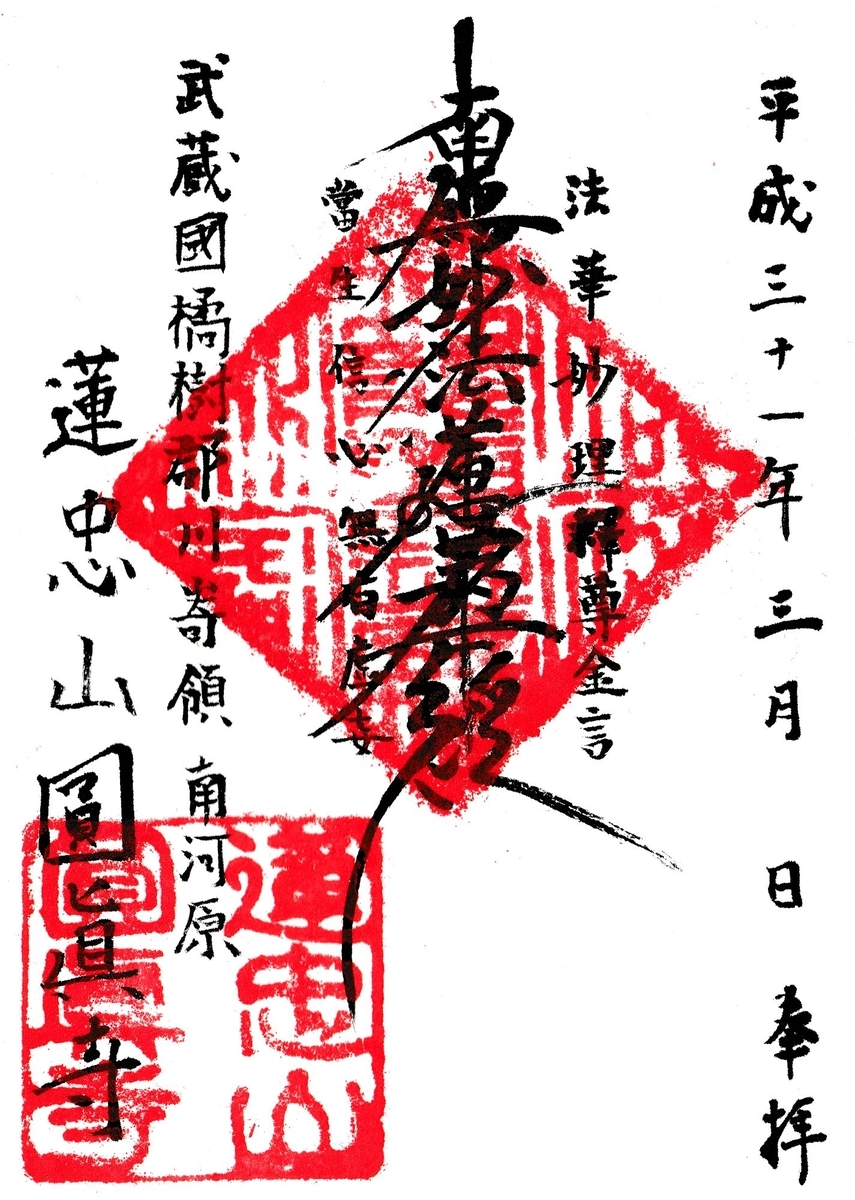 平成三十一年三月 日 奉拝
法華妙理釋尊金言
南無妙法蓮華經
當生信心無有虚妄
武蔵國橘樹郡川嵜領 南河原
蓮忠山圓眞寺
蓮忠山
圓眞寺